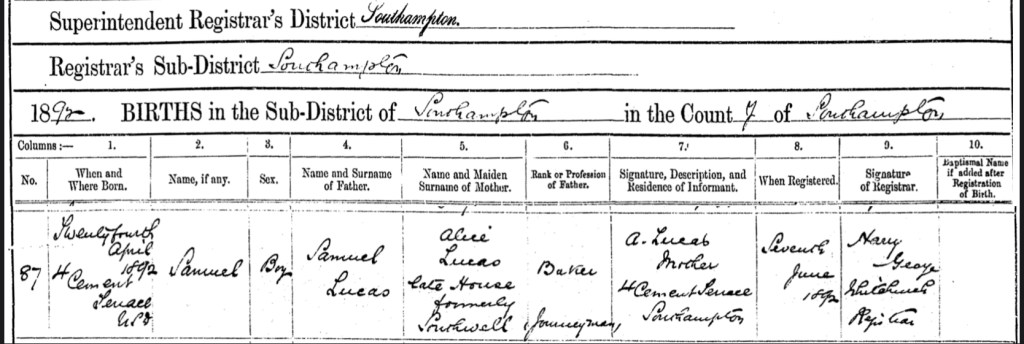 Superintendent Registrar's District Southampton.
Registrar's Sub-District Southampton
1892. BIRTHS in the Sub-District of Southampton in the County of Southampton
Columns :— 1. 2. 3. 4. 5. 6. 7. 8. 9. 10.
No. When and Where Born. Name, if any. Sex. Name and Surname of Father. Name and Maiden Surname of Mother. Rank or Profession of Father. Signature, Description, and Residence of Informant. When Registered. Signature of Registrar. Baptismal Name if added after Registration of Birth.
87
Twenty fourth
April
1892
4 Cement
Terrace
Samuel
Boy
Samuel
Lucas
Alice
Lucas
late House
formerly
Southwell
Baker
(Journeyman)
A. Lucas
Mother
4 Cement Terrace
Southampton
Seventh
June
1892
Harry
George
Whitchurch
Registrar